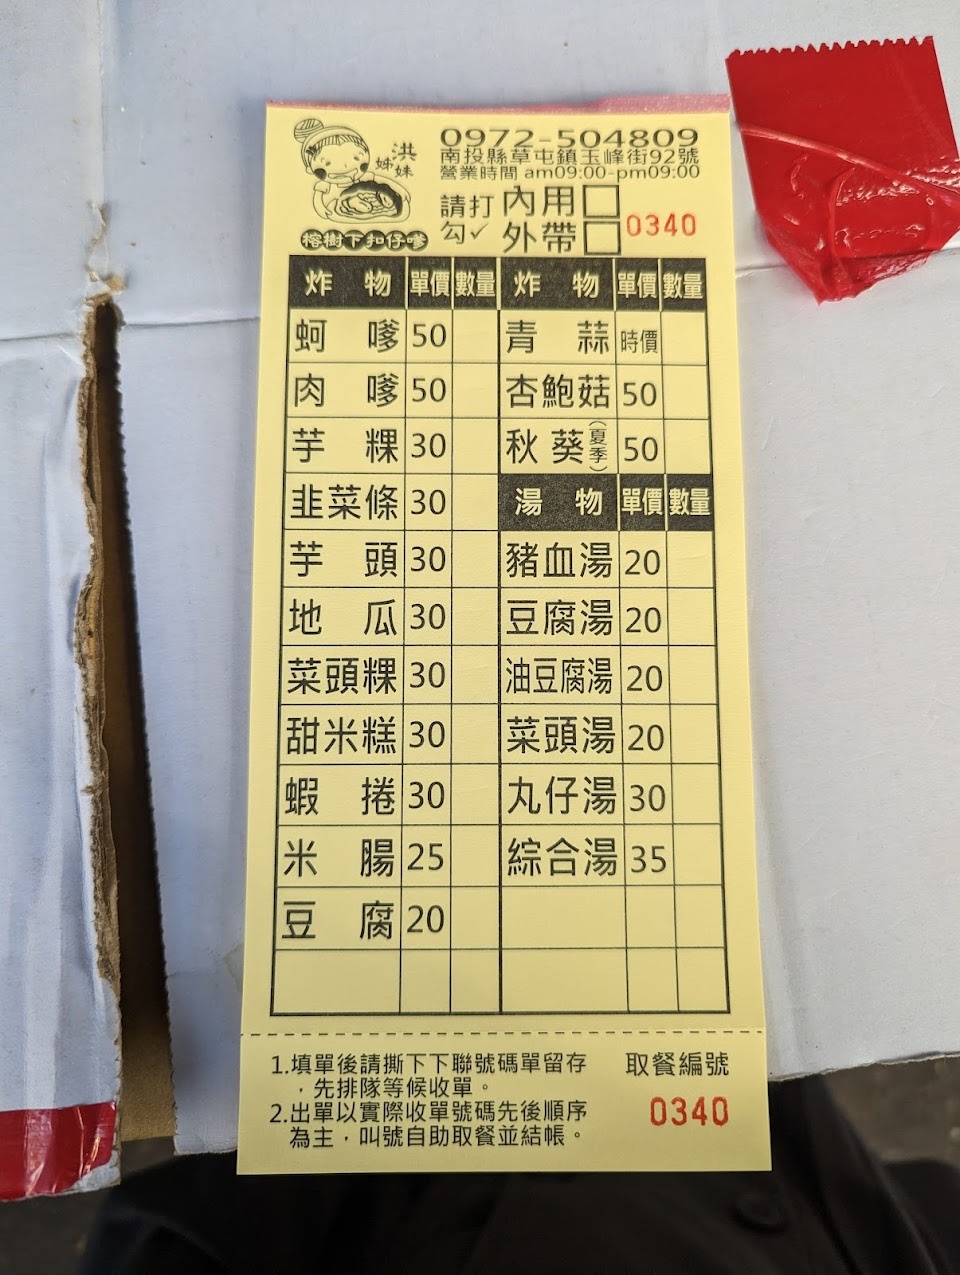 洪
姊妹
榕樹下扣仔嗲
0972-504809
南投縣草屯鎮玉峰街92號
營業時間 am09:00-pm09:00
請打勾✓
內用□
外帶□
0340
炸物 單價 數量 炸物 單價 數量
蚵嗲 50 青蒜 時價
肉嗲 50 杏鮑菇 50
芋粿 30 秋葵(夏季) 50
韭菜條 30 湯物 單價 數量
芋頭 30 豬血湯 20
地瓜 30 豆腐湯 20
菜頭粿 30 油豆腐湯 20
甜米糕 30 菜頭湯 20
蝦捲 30 丸仔湯 30
米腸 25 綜合湯 35
豆腐 20
1.填單後請撕下下聯號碼單留存
，先排隊等候收單。
2.出單以實際收單號碼先後順序
為主，叫號自助取餐並結帳。
取餐編號
0340